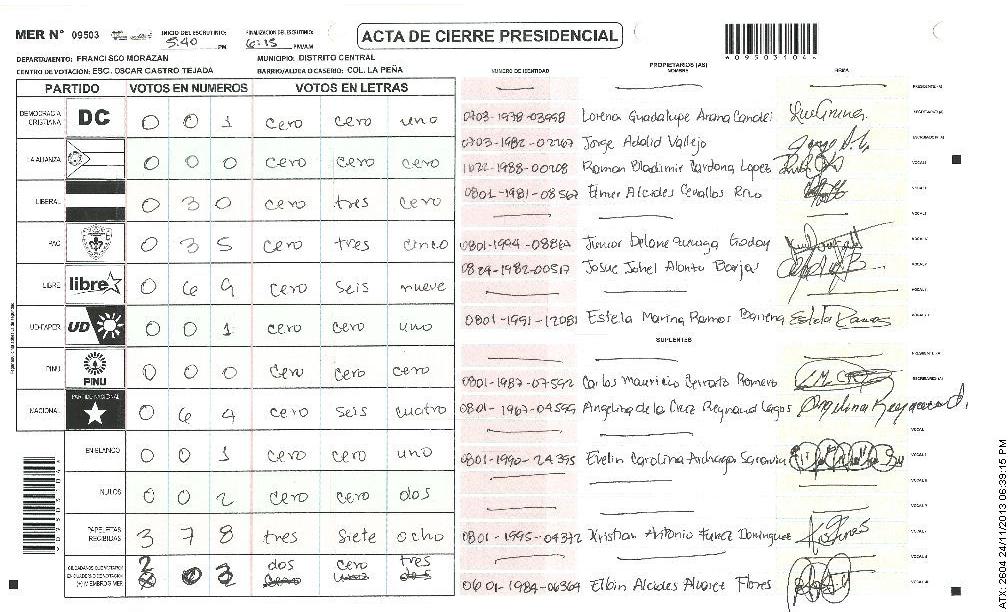 MER N° 09503 INICIO DEL ESCRUTINIO: 5:40 PM FINALIZACION DEL ESCRUTINIO: 6:15 PM/AM ACTA DE CIERRE PRESIDENCIAL
DEPARTAMENTO: FRANCISCO MORAZAN MUNICIPIO: DISTRITO CENTRAL
CENTRO DE VOTACIÓN: ESC. OSCAR CASTRO TEJADA BARRIO/ALDEA O CASERIO: COL. LA PEÑA
PARTIDO VOTOS EN NUMEROS VOTOS EN LETRAS
DEMOCRACIA CRISTIANA DC 0 0 1 cero cero uno
LA ALIANZA 0 0 0 cero cero cero
LIBERAL 0 3 0 cero tres cero
PAC 0 3 5 cero tres cinco
LIBRE libre 0 6 9 cero seis nueve
UD-FAPER UD 0 0 1 cero cero uno
PINU PINU 0 0 0 cero cero cero
NACIONAL PARTIDO NACIONAL 0 6 4 cero seis cuatro
EN BLANCO 0 0 1 cero cero uno
NULOS 0 0 2 cero cero dos
PAPELETAS RECIBIDAS 3 7 8 tres siete ocho
CIUDADANOS QUE VOTARON EN CUADERNO DE VOTACION (+) MIEMBROS MER 2 0 3 dos cero tres
NUMERO DE IDENTIDAD PROPIETARIOS (AS) NOMBRE FIRMA
0703-1978-03958 Lorena Guadalupe Arana Candel
0703-1982-02267 Jorge Adalid Vallejo
1022-1988-00208 Roman Bladimir Cardona Lopez
0801-1981-08567 Elmer Alcides Cevallos Rico
0801-1994-08864 Junior Delone Zuniga Godoy
0824-1982-00517 Josue Johel Alonzo Borjas
0801-1991-12081 Estela Marina Ramos Barrena Estela Ramos
SUPLENTES
0801-1987-07592 Carlos Mauricio Cerrato Romero
0801-1967-04599 Angelina de la Cruz Reynaud Lagos
0801-1990-24395 Evelin Carolina Archaga Saravia
0801-1995-04372 Kristian Antonio Funez Dominguez
0601-1984-06364 Elbin Alcides Alvarez Flores
ATX-2604 24/11/2013 06:39:15 PM